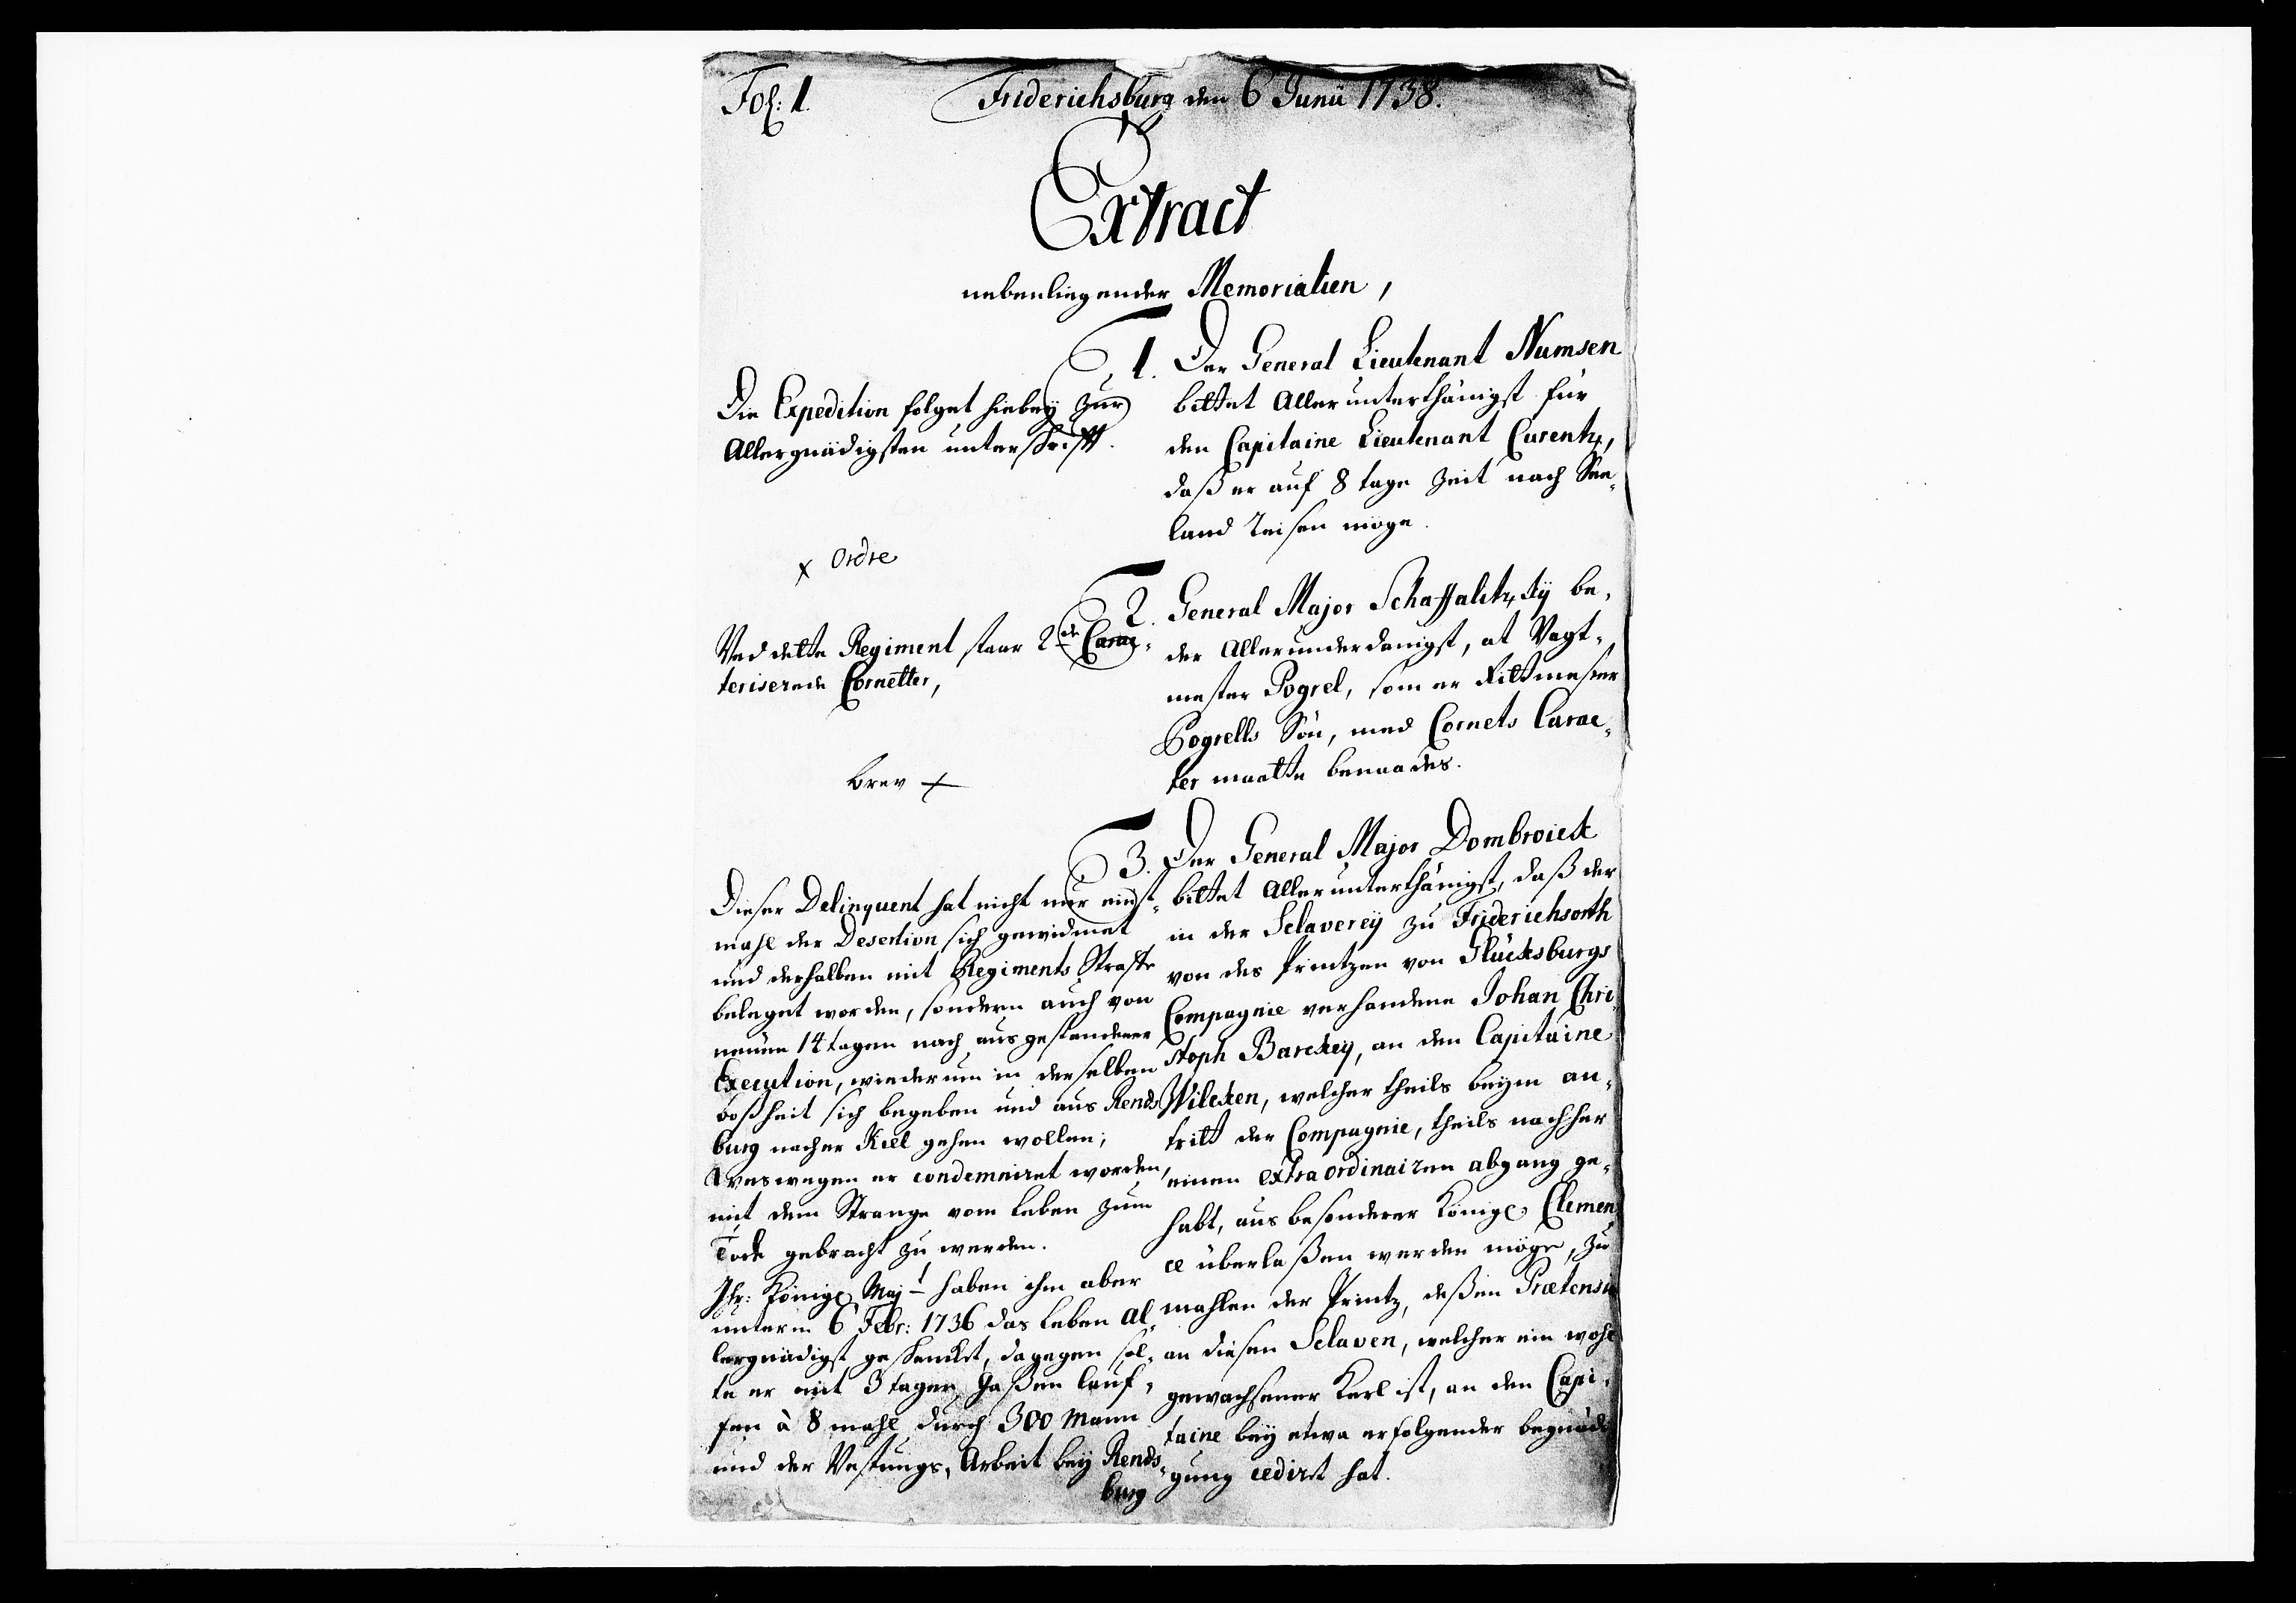 Fol: 1.
Friderichsburg den 6 Junii 1738.
Extract
nebenliegender Memorialien,
1. Der General Lieutenant Numsen
bittet Allerunterthänigst für
den Capitaine Lieutenant Curentz,
daß er auf 8 tage Zeit nach See-
land Reisen möge.
Die Expedition folget hiebey zur
Allergnädigsten unterschrifft.
x Ordre
2. General Major Schaffalitzky be-
der Allerunderdanigst, at Vagt-
mester Pogrel, som er Rittmester
Pogrells Sön, med Cornets Carac-
ter maatte benaades.
Ved dette Regiment staar 2de Carac-
teriserede Cornetter,
brev x
3. Der General Major Dombroick
bittet Allerunterthänigst, daß der
in der Sclaverey zu Friderichsorth
von des Printzen von Glücksburgs
Compagnie verhandene Johan Chri-
stoph Barckey, an den Capitaine
Wilcken, welcher theils beym an-
tritt der Compagnie, theils nachher
einen extraordinairen abgang ge-
habt, aus besonderer Königl. Clemen-
ce überlaßen werden möge, zu
mahlen der Printz, deßen Prætension
an diesen Sclaven, welcher ein wohl
gewachsener Kerl ist, an den Capi-
taine bey etwa erfolgender begnädi-
gung cediret hat.
Dieser Delinquent hat nicht nur einst-
mahl der Desertion sich gewidmet
und derhalben mit Regiments Straffe
beleget worden, sondern auch von
neüen 14 tagen nach ausgestandener
Execution, wiederum in derselben
boßheit sich begeben und aus Rends-
burg nacher Kiel gehen wollen;
Weswegen er condemniret worden,
mit dem Strange vom Leben zum
Tode gebracht zu werden.
Ihr: Königl Majt haben ihm aber
unterm 6 Febr: 1736 das Leben al-
lergnädigst geschencket, dagegen sol-
te er mit 3 tagen Gaßen lauf-
fen à 8 mahl durch 300 Mann
und der Vestungs-Arbeit bey Rends-
burg